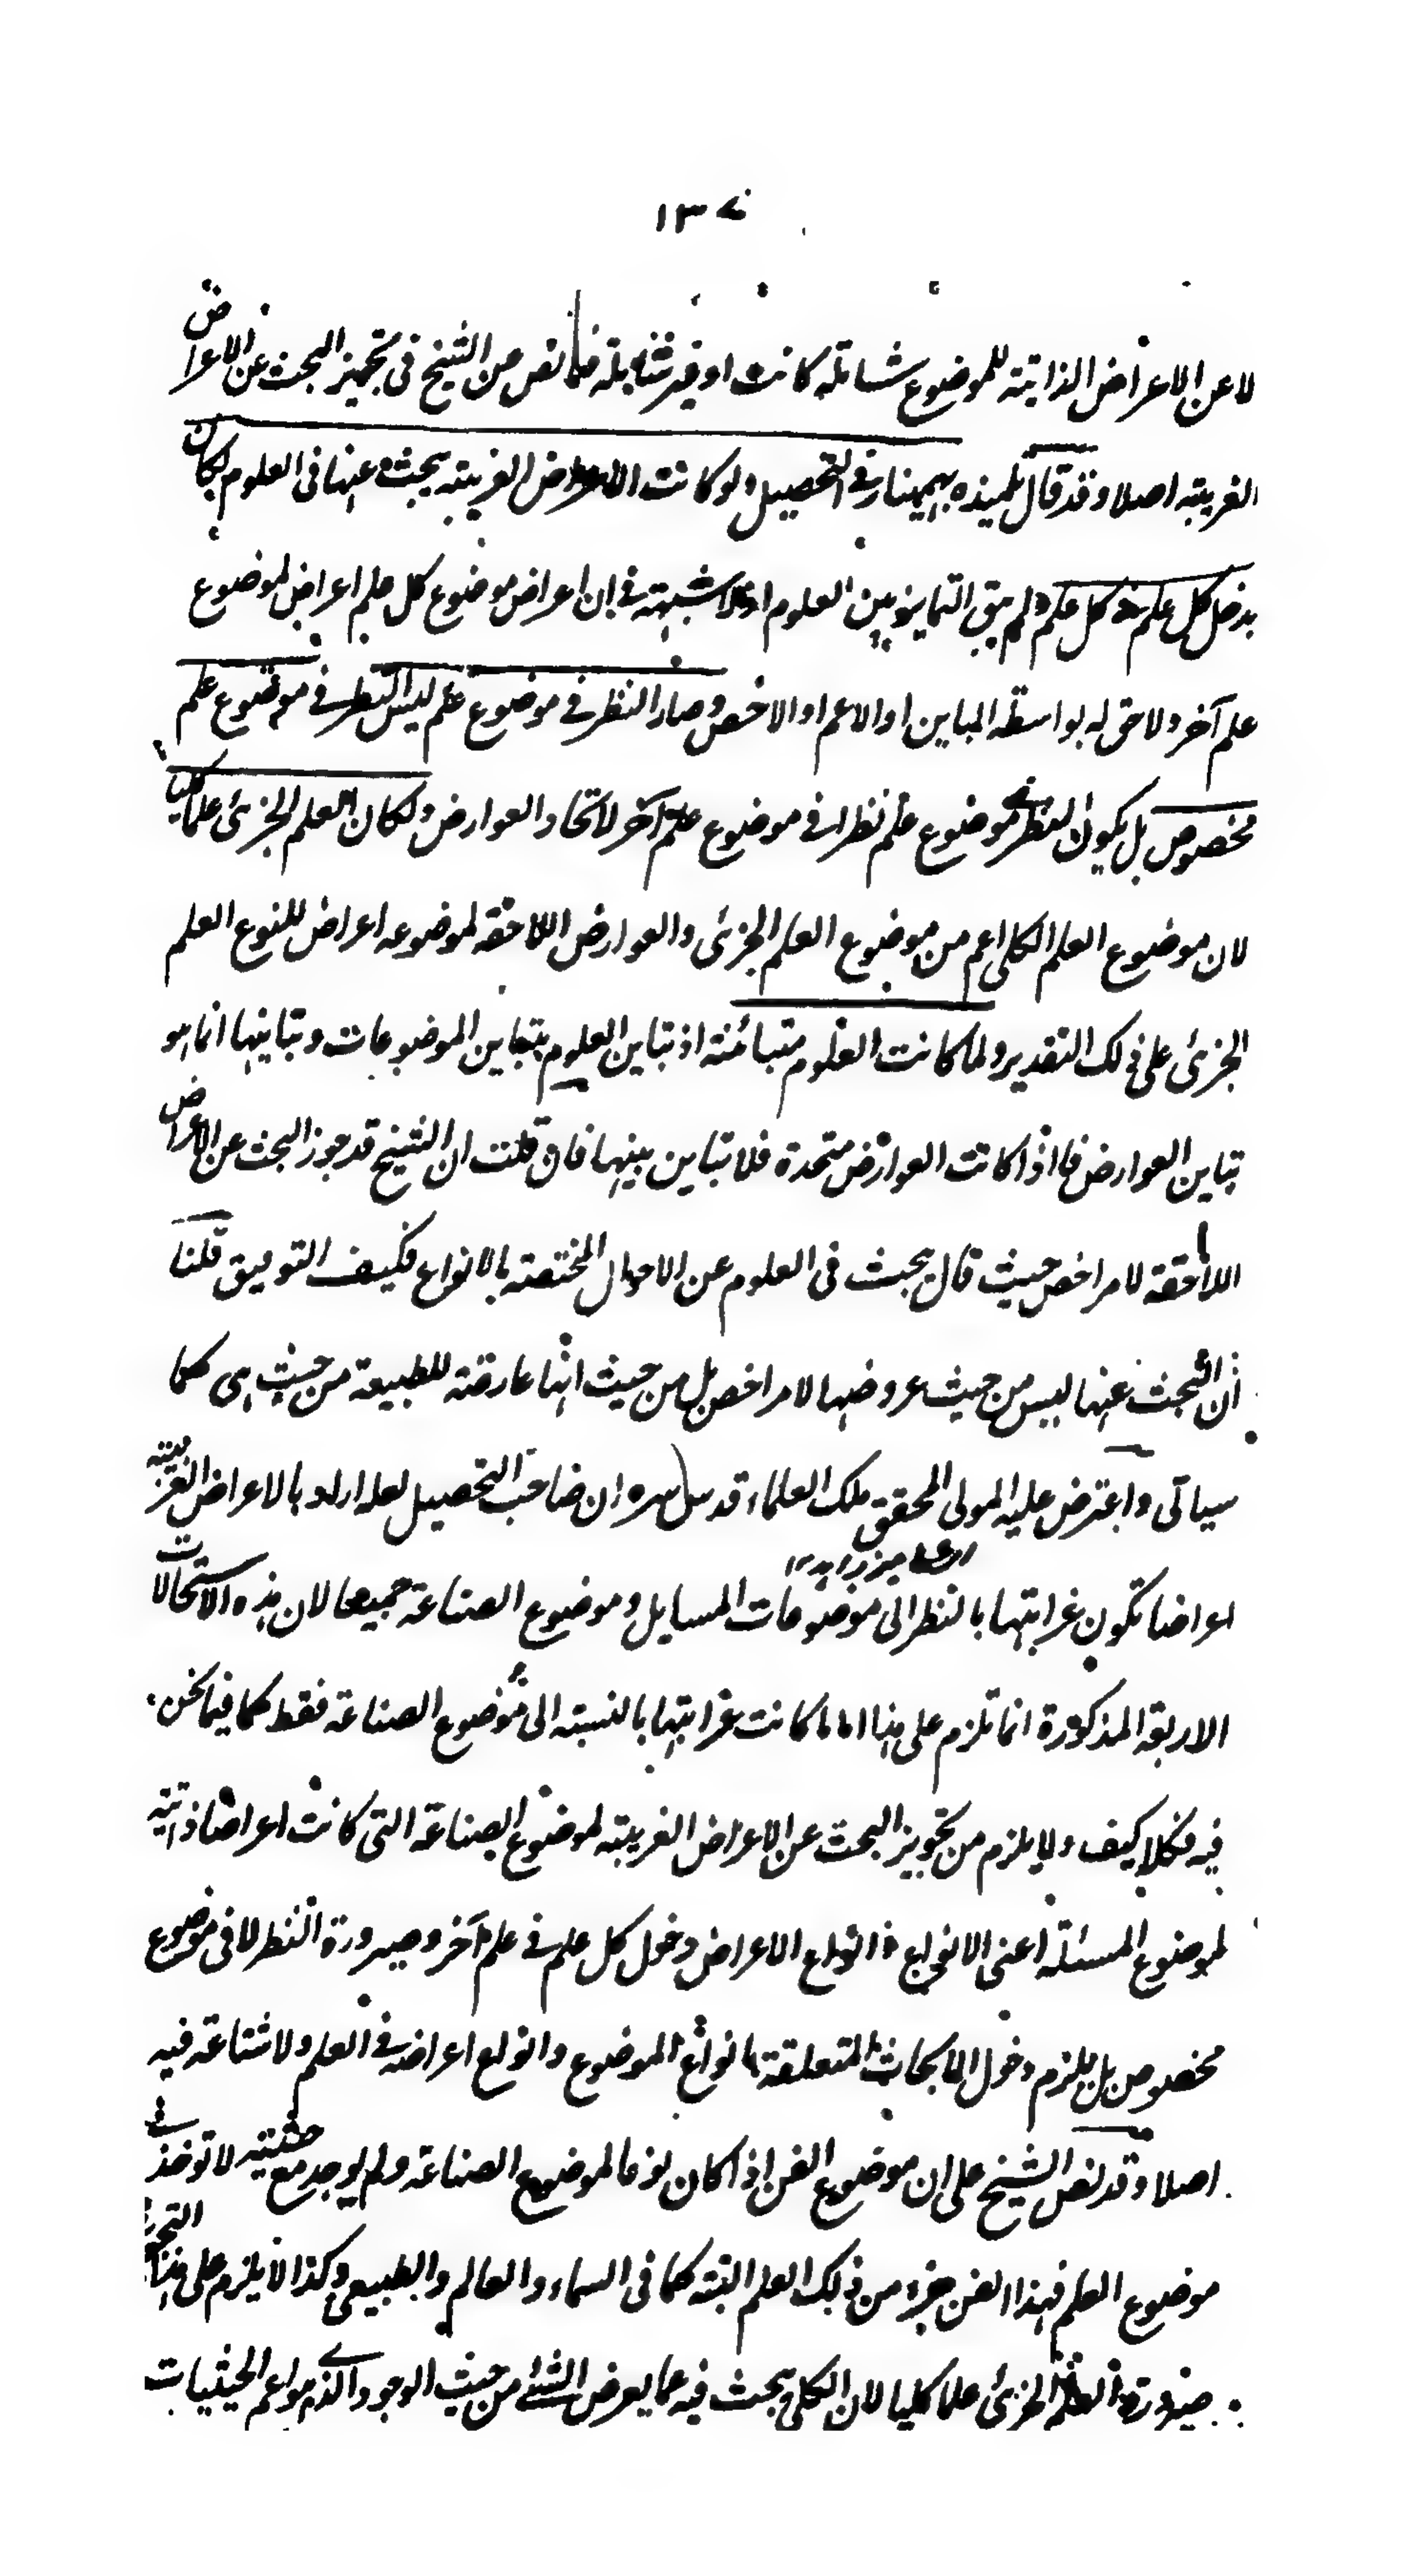 ١٣٧
لا عن الاعراض الذاتية للموضوع شاملة كانت او غير شاملة فما نص من الشيخ فى تجويز البحث عن الاعراض
الغريبة اصلا و قد قال تلميذه بهمنيار فى التحصيل ولو كانت الاعراض الغريبة يبحث عنها فى العلوم لكان
يدخل كل علم فى كل علم ولم يبق التمايز بين العلوم اذ لا شبهة فى ان اعراض موضوع كل علم اعراض لموضوع
علم آخر ولاحق له بواسطة المباين او الاعم او الاخص و صار النظر فى موضوع علم ليس النظر فى موضوع علم
مخصوص بل يكون النظر فى موضوع علم نظرا فى موضوع علم آخر لاتحاد العوارض ولكان العلم الجزئى علما كليا
لان موضوع العلم الكلى اعم من موضوع العلم الجزئى والعوارض اللاحقة لموضوعه اعراض للنوع العلم
الجزئى على ذلك التقدير ولما كانت العلوم متبائنة اذ تباين العلوم بتباين الموضوعات و تباينها انما هو
بتباين العوارض فاذا كانت العوارض متحدة فلا تباين بينها فان قلت ان الشيخ قد جوز البحث عن الاعراض
اللاحقة لامر اخص حيث قال يبحث فى العلوم عن الاحوال المختصة بالانواع فكيف التوفيق قلنا
ان البحث عنها ليس من حيث عروضها لامر اخص بل من حيث انها عارضة للطبيعة من حيث هى كما
سيأتى واعترض عليه المولى المحقق ملك العلماء قدس سره ان صاحب التحصيل لعله اراد بالاعراض الغريبة
اعراضا تكون غرابتها بالنظر الى موضوعات المسايل و موضوع الصناعة جميعا لان هذه الاستحالات
الاربعة المذكورة انما تلزم على هذا اما ما كانت غرابتها بالنسبة الى موضوع الصناعة فقط كما فيما نحن
فيه فكلا كيف ولا يلزم من تجويز البحث عن الاعراض الغريبة لموضوع الصناعة التى كانت اعراضا ذاتية
لموضوع المسئلة اعنى الانواع وانواع الاعراض دخول كل علم فى علم آخر و صيرورة النظر لا فى موضوع
مخصوص بل يلزم دخول الابحاث المتعلقة بانواع الموضوع وانواع اعراضه فى العلم ولا شناعة فيه
اصلا و قد نص الشيخ على ان موضوع الفن اذا كان نوعا لموضوع الصناعة ولم يوجد مع حيثية لا توخذ فى
موضوع العلم فهذا الفن جزء من ذلك العلم البتة كما فى السماء والعالم والطبيعى وكذا لا يلزم على هذا
صيرورة العلم الجزئى علما كليا لان الكلى يبحث فيه عما يعرض الشئ من حيث الوجود الذى هو اعم الحيثيات